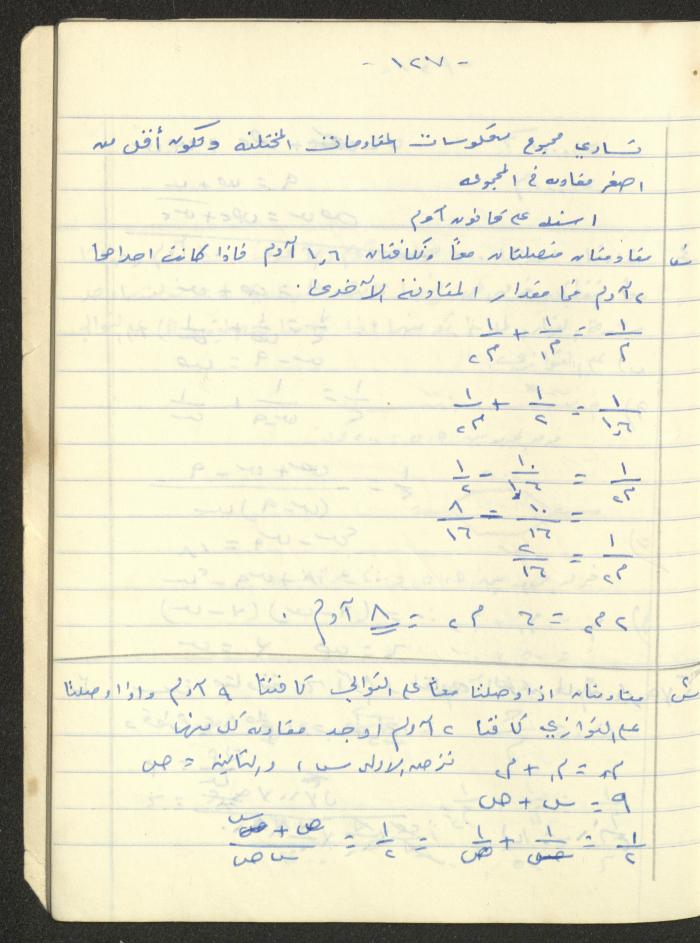 - ١٢٧ -
تساوي مجموع معكوسات المقاومات المختلفه وتكون أقل من
اصغر مقاومه في المجموعه
اسئله على قانون أوم
س مقاومتان متصلتان معاً وتكافئان ١,٦ أوم فاذا كانت احداهما
٢ أوم فما مقدار المقاومة الآخرى؟
١/م = ١/م١ + ١/م٢
١/١,٦ = ١/٢ + ١/م٢
١/م٢ = ١٠/١٦ - ١/٢
= ١٠/١٦ - ٨/١٦
١/م٢ = ٢/١٦
٢ م٢ = ١٦ م٢ = ٨ أوم .
س مقاومتان اذا وصلتا معاً على التوالي كافئتا ٩ أوم واذا وصلتا
على التوازي كافئتا ٢ أوم اوجد مقاومه كل منهما
م = م١ + م٢ نفرض الاولى س ، والثانيه = ص
٩ = س + ص
١/٢ = ١/س + ١/ص = ١/٢ = ص + س/س ص